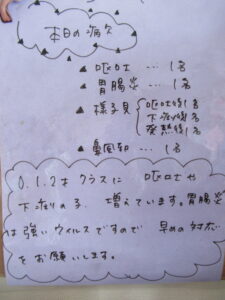 本日の病欠
▲ 嘔吐 … 1名
▲ 胃腸炎 … 1名
▲ 様子見 { 嘔吐後1名
下痢後1名
発熱後1名
▲ 鼻風邪 … 1名
0.1.2才クラスに 嘔吐や
下痢の子、増えています。胃腸炎
は強いウイルスですので 早めの対応
をお願いします。